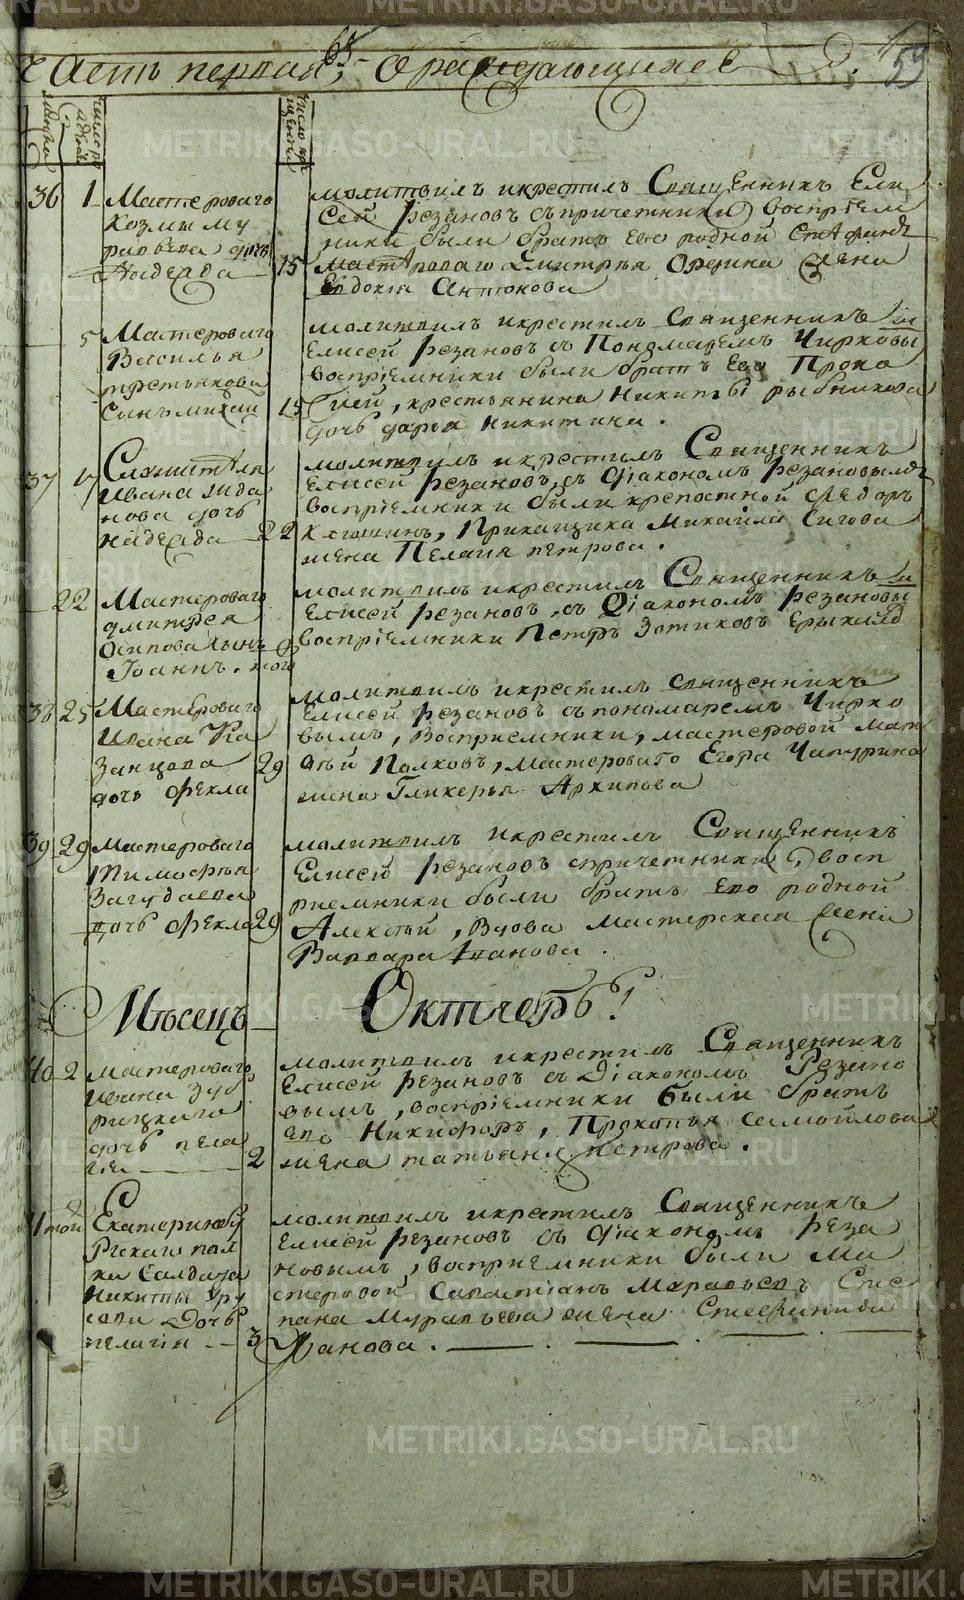 65
59
Часть первая, О раждающихсѧ
36 1 Мастероваго
Козмы Му
равьева дочь
Надежда 15
молитвилъ икрестилъ Священникъ Ели
сей Резановъ съпричетники, воспрiем
ники были братъ его родной
мастероваго Дмитрея жена
Евдокiя Антонова
5 Мастероваго
Василья
третьякова
Сынъ михаи 15
молитвилъ икрестилъ Священникъ
Елисей Резановъ съ Пономаремъ Чирковы
воспрiемники были братъ Его Проко
пей, крестьянина Никиты рыбникова
дочь дарья никитина.
37 17 Служителя
Ивана
нова дочь
надежда 22
молитвилъ икрестилъ Священникъ
Елисей Резановъ, съ Дiакономъ Резановымъ
воспрiемники были крепостной Федоръ
Прикащика Михаила
жена Пелагiя петрова.
22 Мастероваго
дмитрея
Осипова сынъ
Iоаннъ. того
молитвилъ икрестилъ Священникъ
Елисей Резановъ, съ Дiакономъ Резановы
воспрiемники Петръ Зотиковъ
38 25 Мастероваго
Ивана Ка
занцова
дочь Фекла 29
молитвилъ икрестилъ священникъ
Елисей Резановъ съпономаремъ Чирко
вымъ, Восприемники, мастеровой мат
фѣй Палковъ, мастероваго Егора Чапурина
жена Гликерья Архипова
39 29 Мастероваго
Тимофѣя
Загудаева
дочь Фекла 29
молитвилъ икрестилъ Священникъ
Елисей Резановъ спричетники, восп
риемники были братъ Его родной
Алексѣй, Вдова мастерская жена
Варвара Иванова.
Мѣсецъ Октябрь
40 2 мастероваго
Ивана Зуб
рицкаго
дочь пела
гея 2
молитвилъ икрестилъ Священникъ
Елисей Резановъ съ Дiакономъ Резано
вымъ, воспрiемники были братъ
его Никифоръ, Прокопья самойлова
жена татьяна петрова.
41 той Екатеринбу
ргскаго пол
ка Салдата
Никиты
дочь
пелагия 3
молитвилъ икрестилъ Священникъ
Елисей Резановъ съ дiакономъ Реза
новымъ, восприемники были Ма
стеровой Савастiанъ Муравьевъ Сте
пана Муравьева жена Стефанида
Иванова.
METRIKI.GASO-URAL.RU